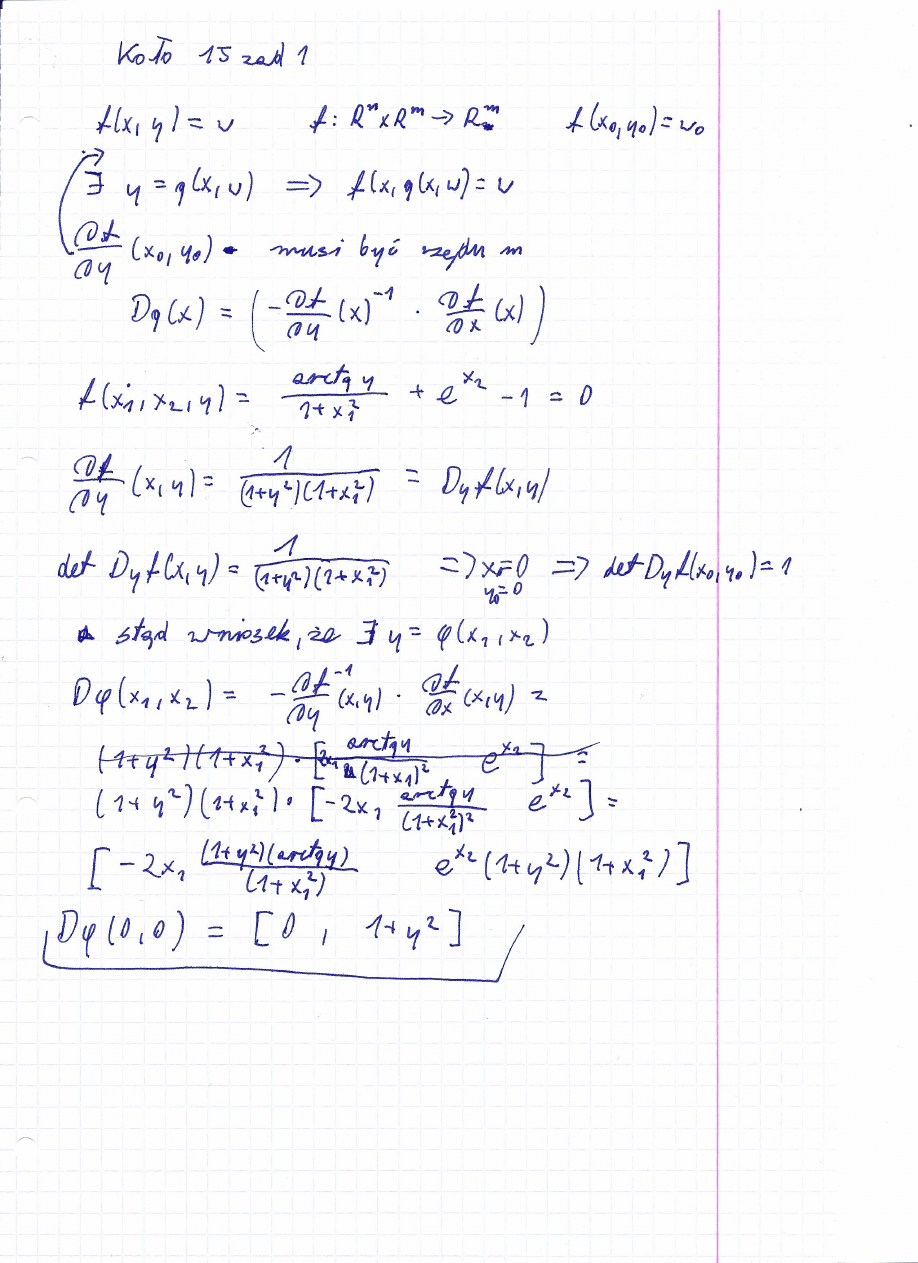 Koło 15 zad 1
f(x, y) = v f: Rⁿ x Rᵐ → Rᵐ f(x₀, y₀) = v₀
∃ y = g(x, v) ⟹ f(x, g(x, v)) = v
∂f/∂y (x₀, y₀) - musi być rzędu m
Dg(x) = (-∂f/∂y (x)⁻¹ · ∂f/∂x (x))
f(x₁, x₂, y) = arctg y/(1+x₁²) + e^(x₂) - 1 = 0
∂f/∂y (x, y) = 1/((1+y²)(1+x₁²)) = Dyf(x, y)
det Dyf(x, y) = 1/((1+y²)(1+x₁²)) ⟹ x₀=0 y₀=0 ⟹ det Dyf(x₀, y₀) = 1
stąd wniosek, że ∃ y = φ(x₁, x₂)
Dφ(x₁, x₂) = -∂f/∂y⁻¹ (x, y) · ∂f/∂x (x, y) =
(1+y²)(1+x₁²) · [2x₁ arctg y/(1+x₁)² e^(x₂)] =
(1+y²)(1+x₁²) · [-2x₁ arctg y/(1+x₁²)² e^(x₂)] =
[-2x₁ (1+y²)(arctg y)/(1+x₁²) e^(x₂)(1+y²)(1+x₁²)]
Dφ(0, 0) = [0, 1+y²]